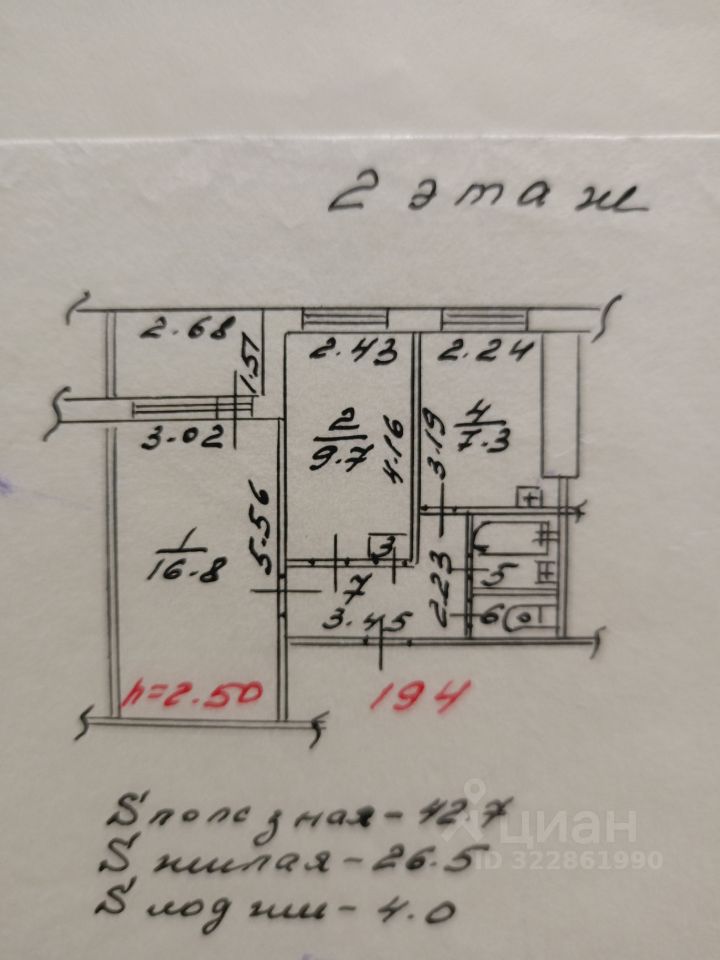 2 этаж
2.68
1.51
2.43
2.24
3.02
2
9.7
4.16
3.19
4
7.3
5.56
1
16.8
3
7
3.45
2.23
5
6
h=2.50
194
S полезная - 42.7
S жилая - 26.5
S лоджии - 4.0
циан
ID 322861990